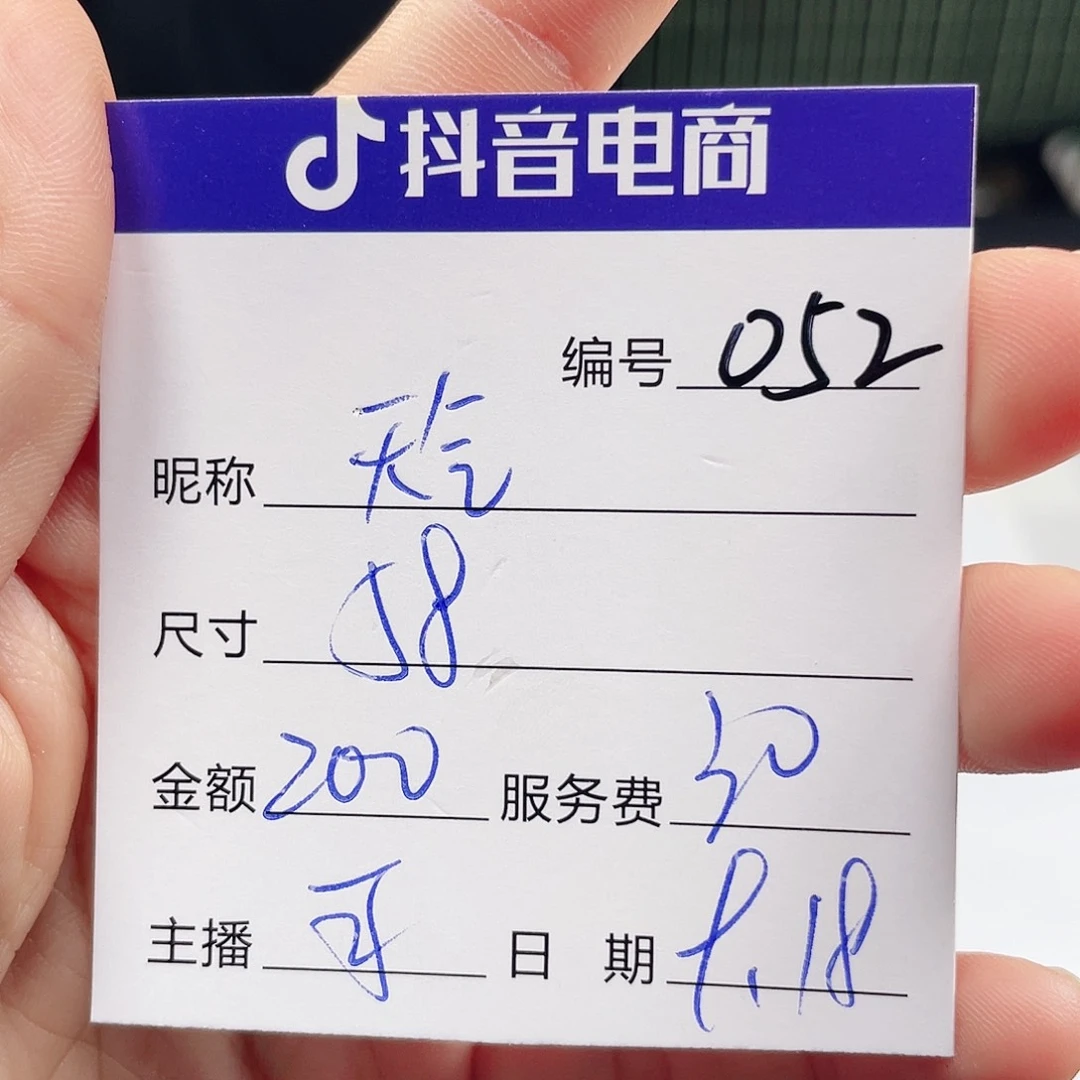 抖音电商
编号 052
昵称 天气
尺寸 58
金额 200 服务费 50
主播 可
日 期 8.18